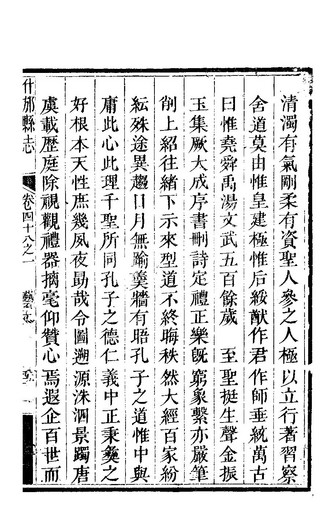 清濁有氣剛柔有資聖人參之人極以立行著習察
舍道莫由惟皇建極惟后綏猷作君作師垂統萬古
曰惟堯舜禹湯文武五百餘歲 至聖挺生聲金振
玉集厥大成序書刪詩定禮正樂既窮象繫亦嚴筆
削上紹往緒下示來型道不終晦秩然大經百家紛
紜殊途異趨日月無踰羹牆有晤孔子之道惟中與
庸此心此理千聖所同孔子之德仁義中正秉彝之
好根本天性庶幾夙夜勗哉令圖溯源洙泗景躅唐
虞載歷庭除視觀禮器摛毫仰贊心焉遐企百世而
什邡縣志 卷四十八之一 藝